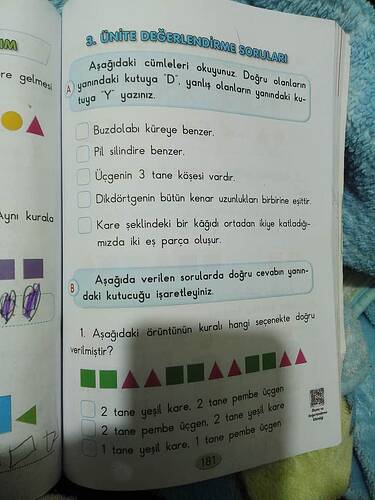 IM
re gelmesi
Aynı kurala
3. ÜNİTE DEĞERLENDİRME SORULARI
A
Aşağıdaki cümleleri okuyunuz. Doğru olanların
yanındaki kutuya "D", yanlış olanların yanındaki ku-
tuya "Y" yazınız.
Buzdolabı küreye benzer.
Pil silindire benzer.
Üçgenin 3 tane köşesi vardır.
Dikdörtgenin bütün kenar uzunlukları birbirine eşittir.
Kare şeklindeki bir kâğıdı ortadan ikiye katladığı-
mızda iki eş parça oluşur.
B
Aşağıda verilen sorularda doğru cevabın yanın-
daki kutucuğu işaretleyiniz.
1. Aşağıdaki örüntünün kuralı hangi seçenekte doğru
verilmiştir?
2 tane yeşil kare, 2 tane pembe üçgen
2 tane pembe üçgen, 2 tane yeşil kare
1 tane yeşil kare, 1 tane pembe üçgen
181